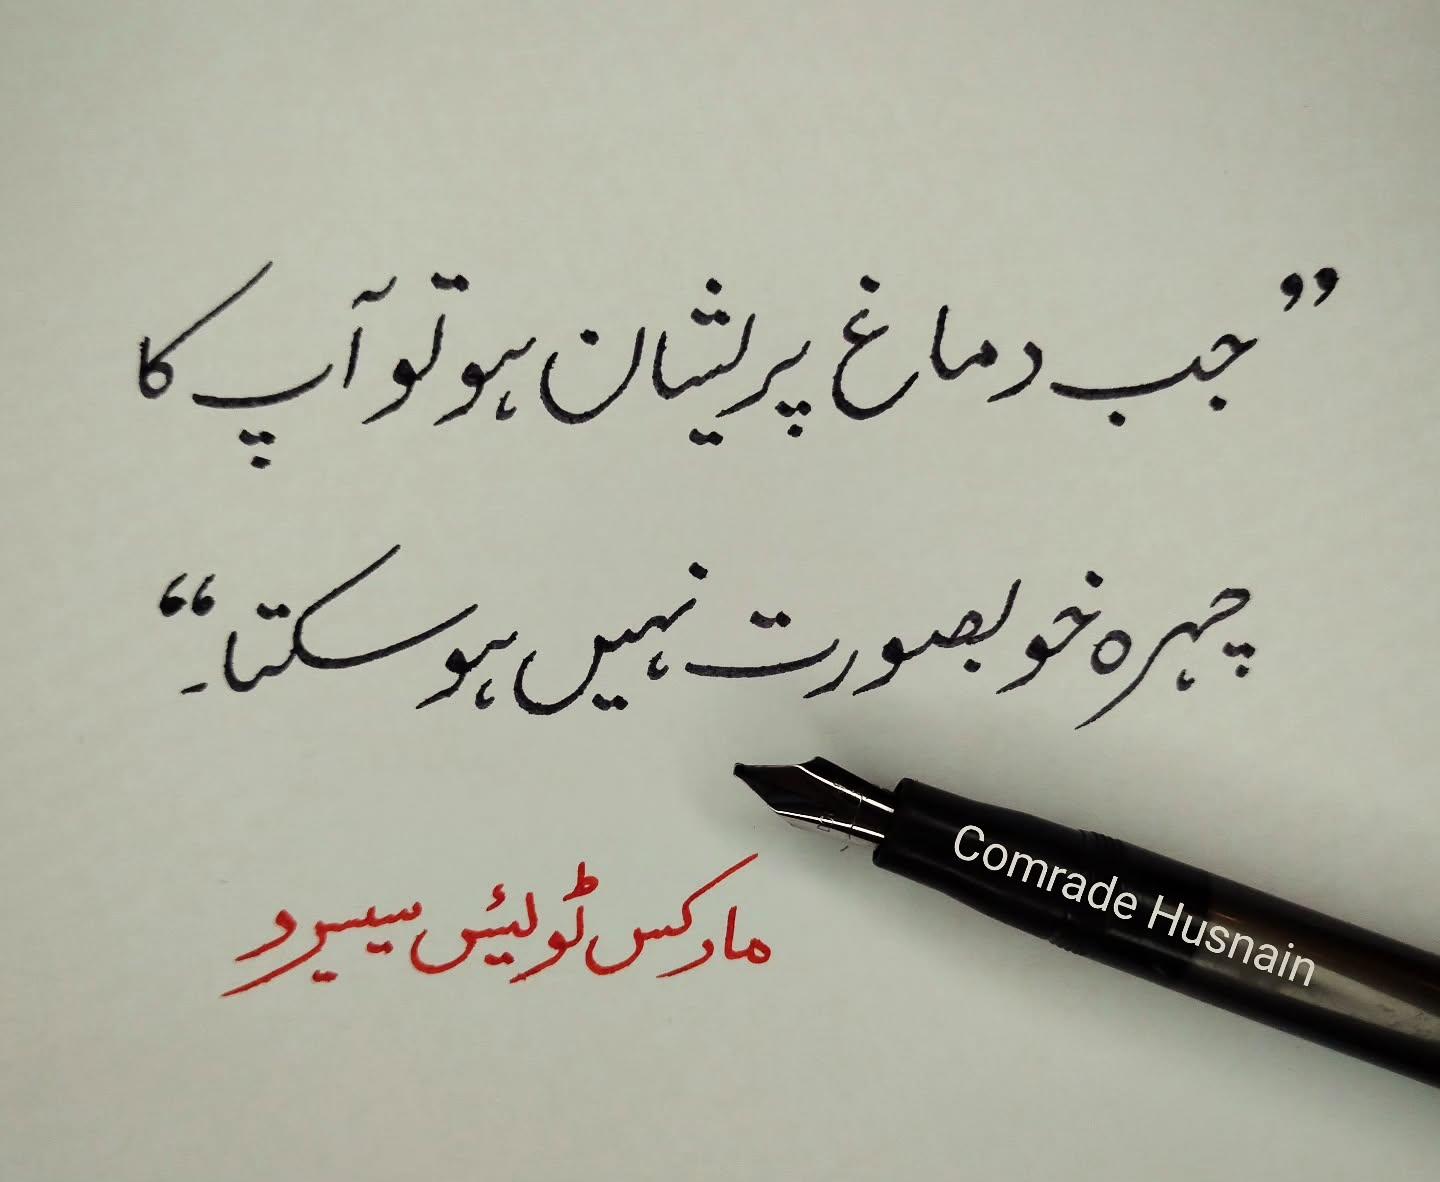 ”جب دماغ پریشان ہو تو آپ کا
چہرہ خوبصورت نہیں ہو سکتا۔“
مارکس ٹولیئس سیسرو
Comrade Husnain